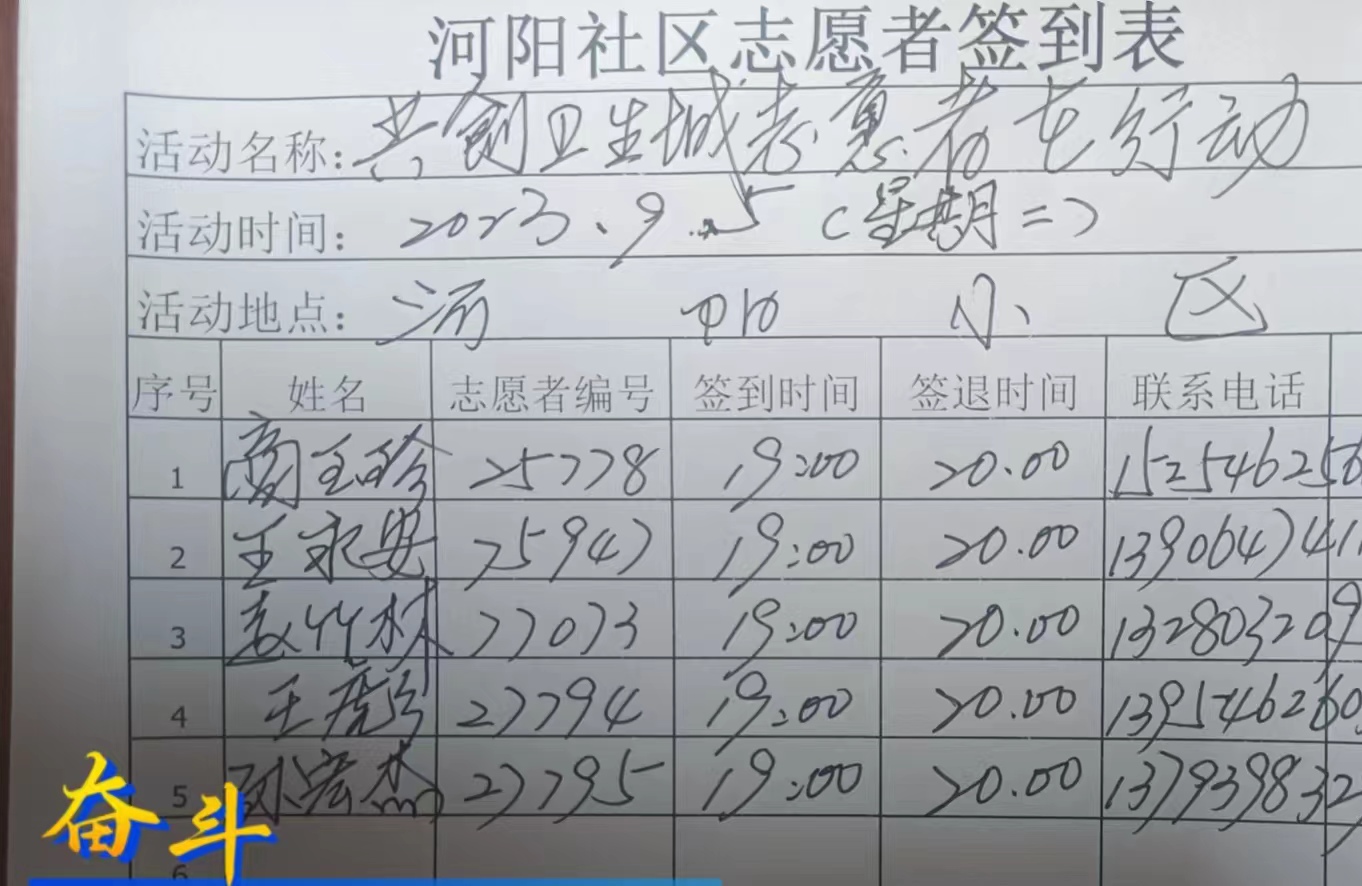 河阳社区志愿者签到表
活动名称：共创卫生城志愿者在行动
活动时间：2023.9.5（星期二）
活动地点：河阳小区
序号 姓名 志愿者编号 签到时间 签退时间 联系电话
1 商玉珍 25778 19:00 20.00 152546256
2 王永安 75947 19:00 20.00 139064741
3 赵竹林 77073 19:00 20.00 132803209
4 王 27794 19:00 20.00 139546260
5 孙宏杰 27795 19:00 20.00 137939832
6
奋斗